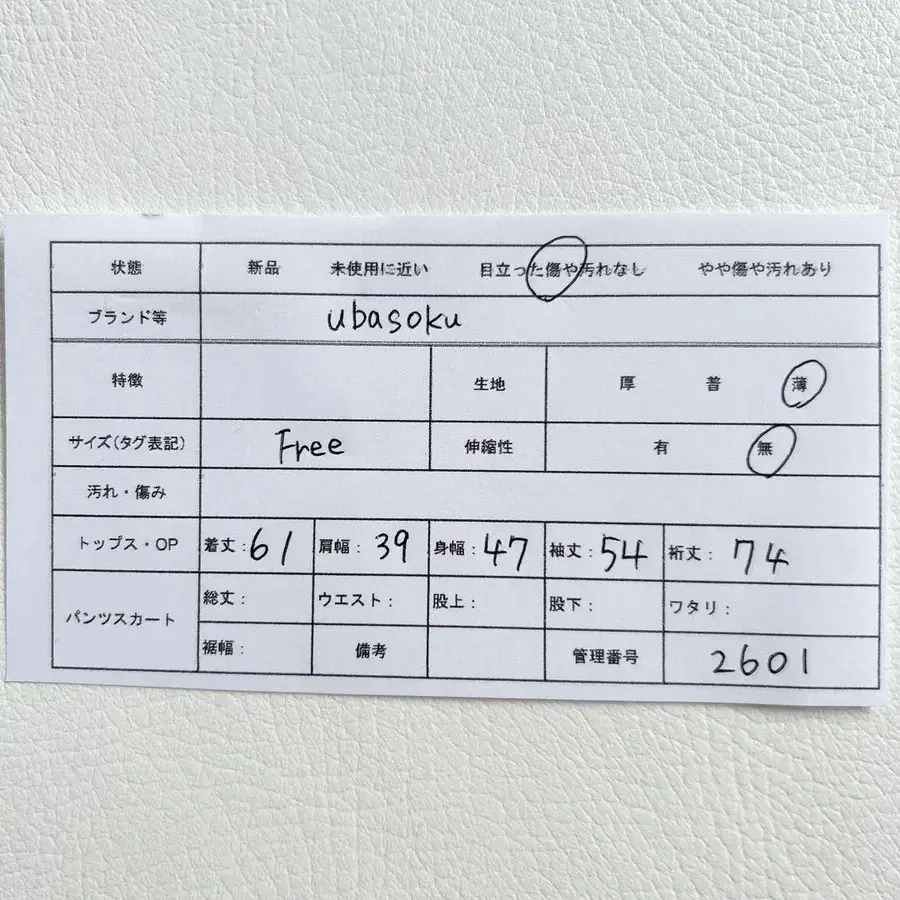 状態 新品 未使用に近い 目立った傷や汚れなし やや傷や汚れあり
ブランド等 ubasoku
特徴 生地 厚 普 薄
サイズ(タグ表記) Free 伸縮性 有 無
汚れ・傷み
トップス・OP 着丈:61 肩幅:39 身幅:47 袖丈:54 裄丈:74
パンツスカート 総丈: ウエスト: 股上: 股下: ワタリ:
裾幅: 備考 管理番号 2601